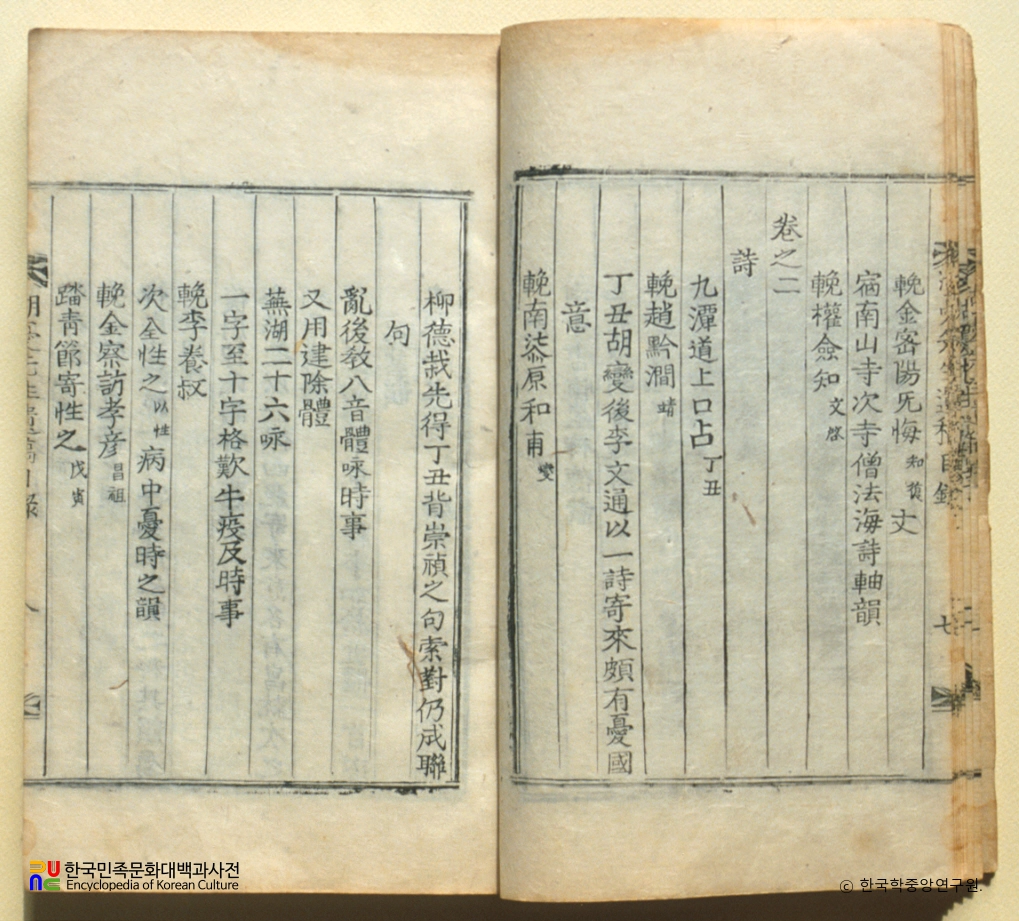 輓金密陽旡悔 知復 丈
宿南山寺次寺僧法海詩軸韻
輓權僉知 文啓
卷之二
詩
九潭道上口占 丁丑
輓趙黔澗 靖
丁丑胡變後李文通以一詩寄來頗有憂國
意
輓南柒原和甫 燮
柳德哉先得丁丑背崇禎之句索對仍成聯
句
亂後效八音體咏時事
又用建除體
蕪湖二十六咏
一字至十字格歎牛疫及時事
輓李養叔
次全性之 以性 病中憂時之韻
輓金察訪孝彦 昌祖
踏靑節寄性之 戊寅
한국민족문화대백과사전
Encyclopedia of Korean Culture
© 한국학중앙연구원.